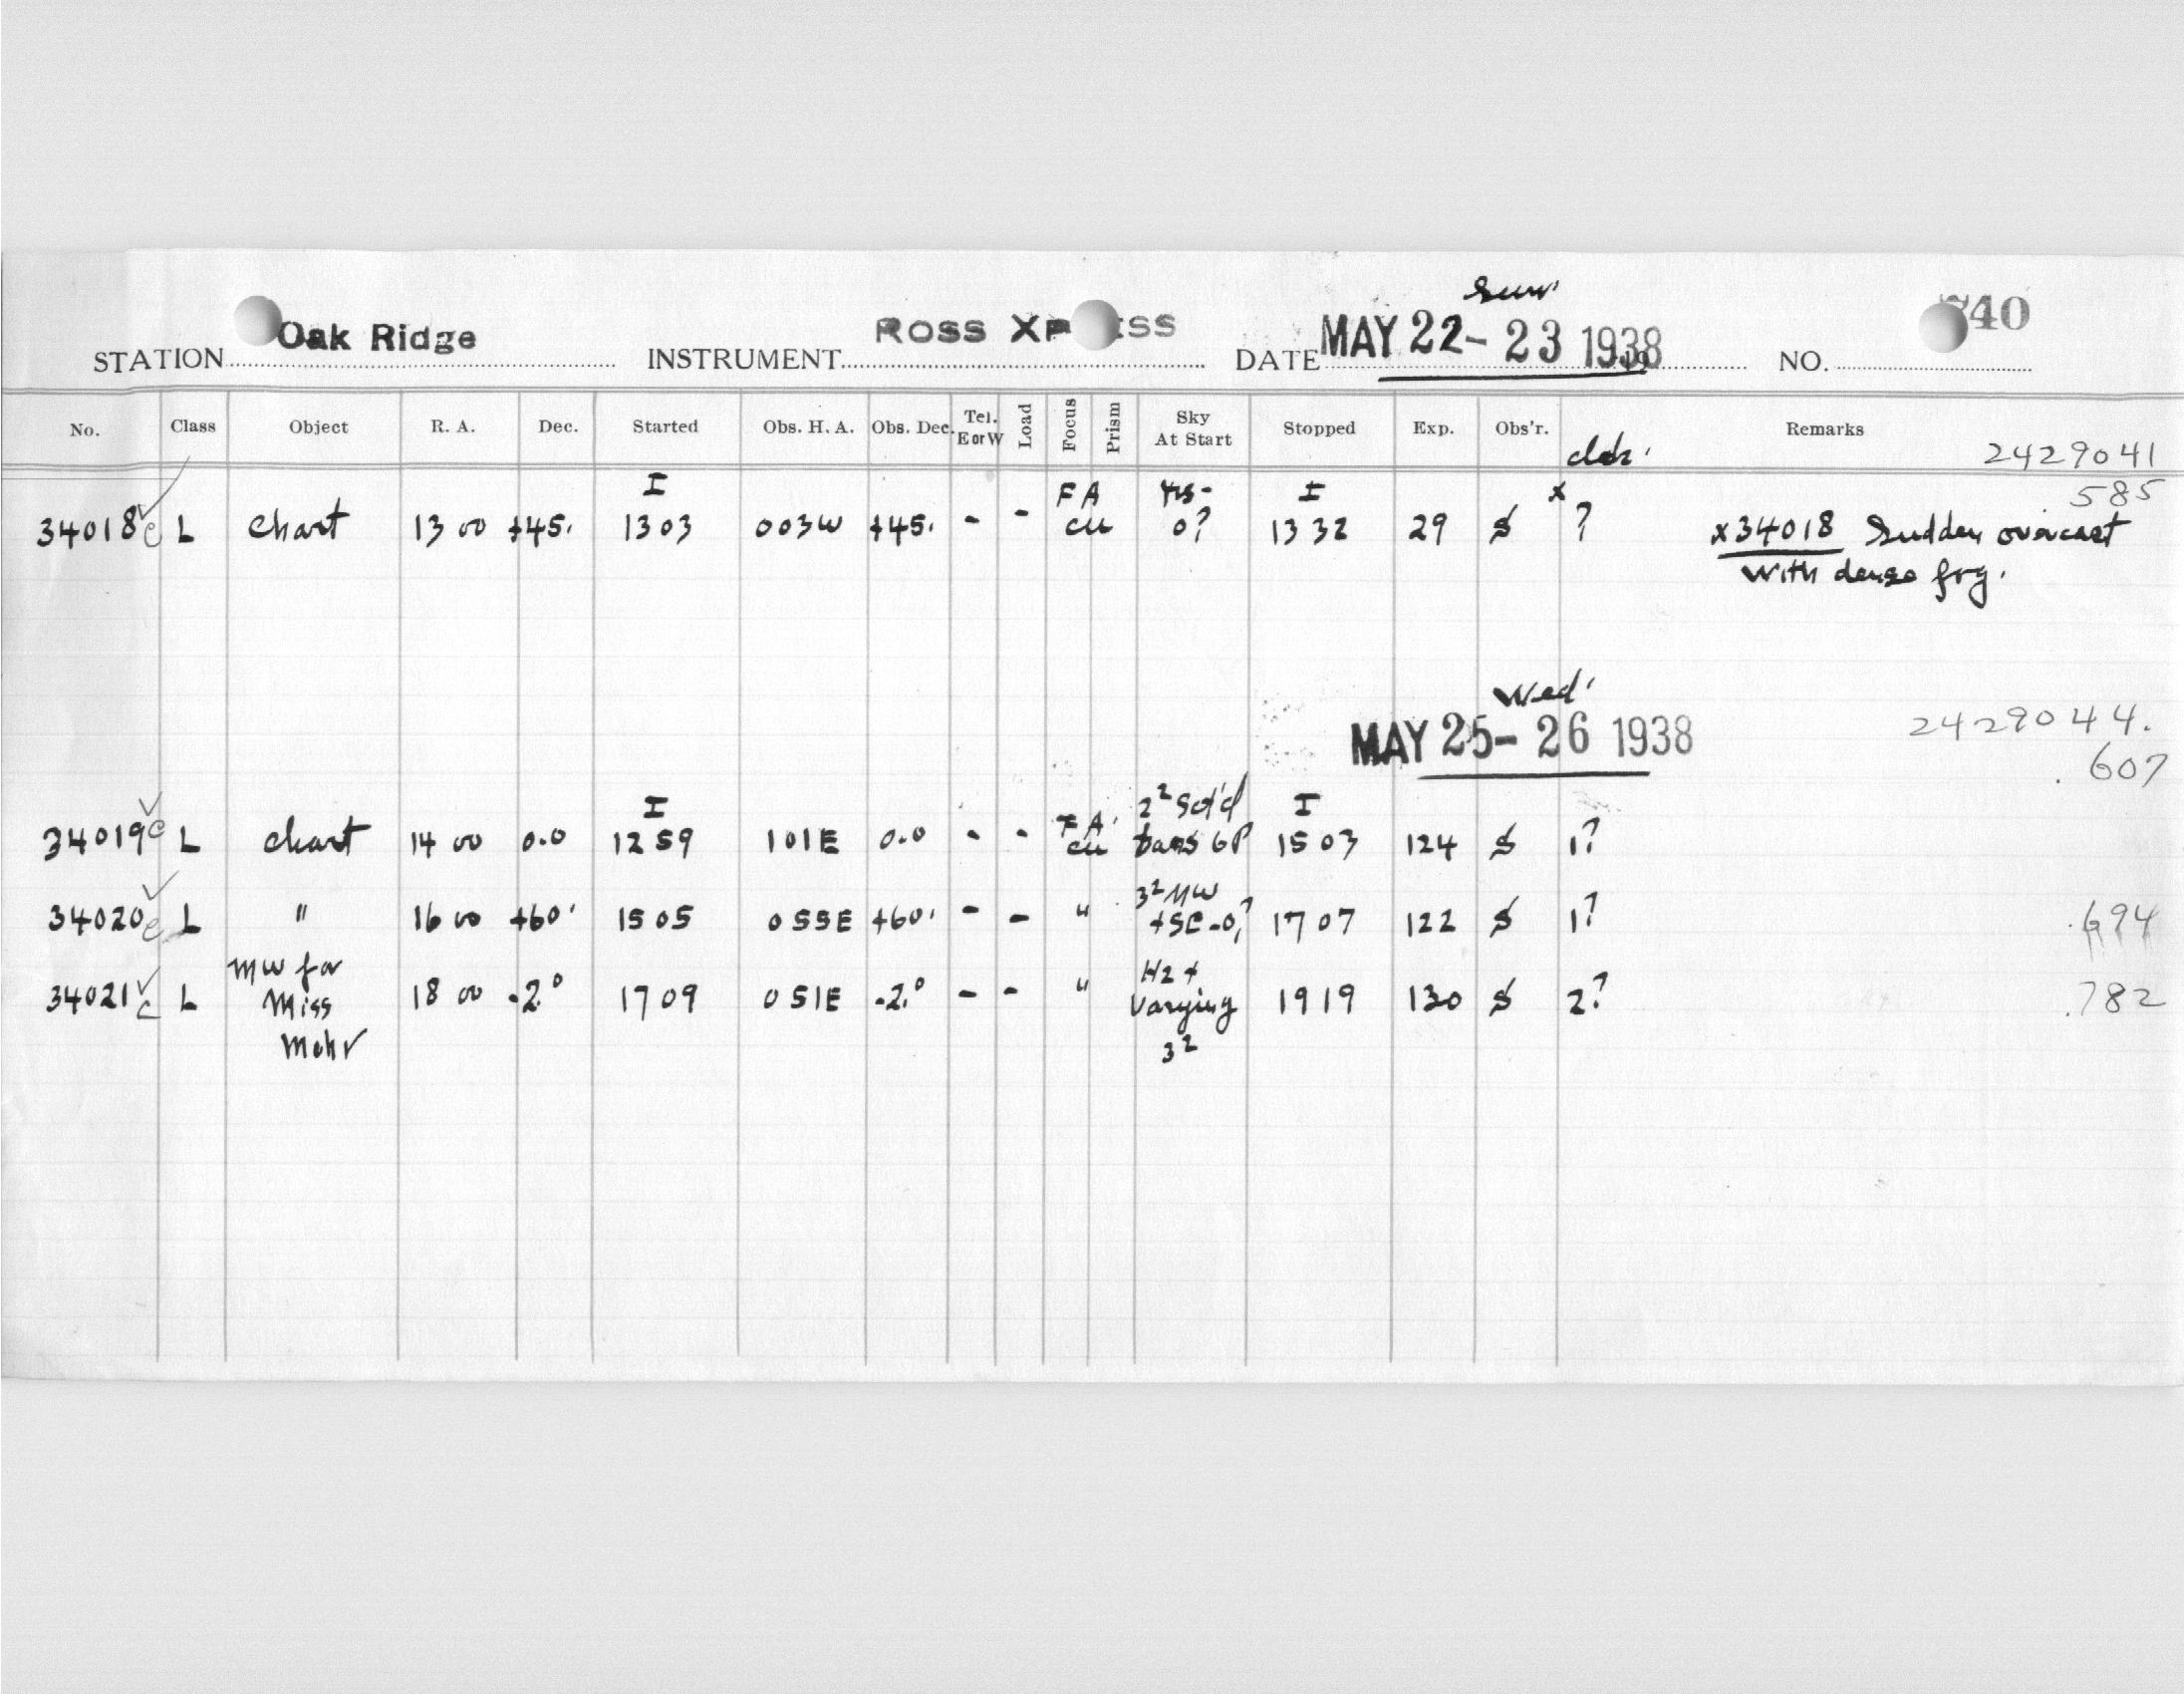 Sun.
STATION Oak Ridge INSTRUMENT ROSS XP ESS DATE MAY 22-23 1938 19 NO. 40
No. Class Object R. A. Dec. Started Obs. H. A. Obs. Dec. Tel. E or W Load Focus Prism Sky At Start Stopped Exp. Obs'r. Remarks
2429041
I FA I x .585
34018 c L Chart 13 00 +45. 13 03 003W +45. - - cu 0? 13 32 29 S ? x34018 Sudden overcast
with dense fog.
Wed.
MAY 25-26 1938 2429044.
.607
I FA. 2² Sct'd I
34019 c L Chart 14 00 0.0 12 59 101E 0.0 - - cu bars 6P 15 03 124 S 1?
3² MW
34020 c L " 16 00 +60. 15 05 055E +60. - - " +SC-0,? 17 07 122 S 1? .694
MW for Hz +
34021 c L Miss 18 00 -2.° 17 09 051E -2.° - - " Varying 19 19 130 S 2? .782
Mohr 3²